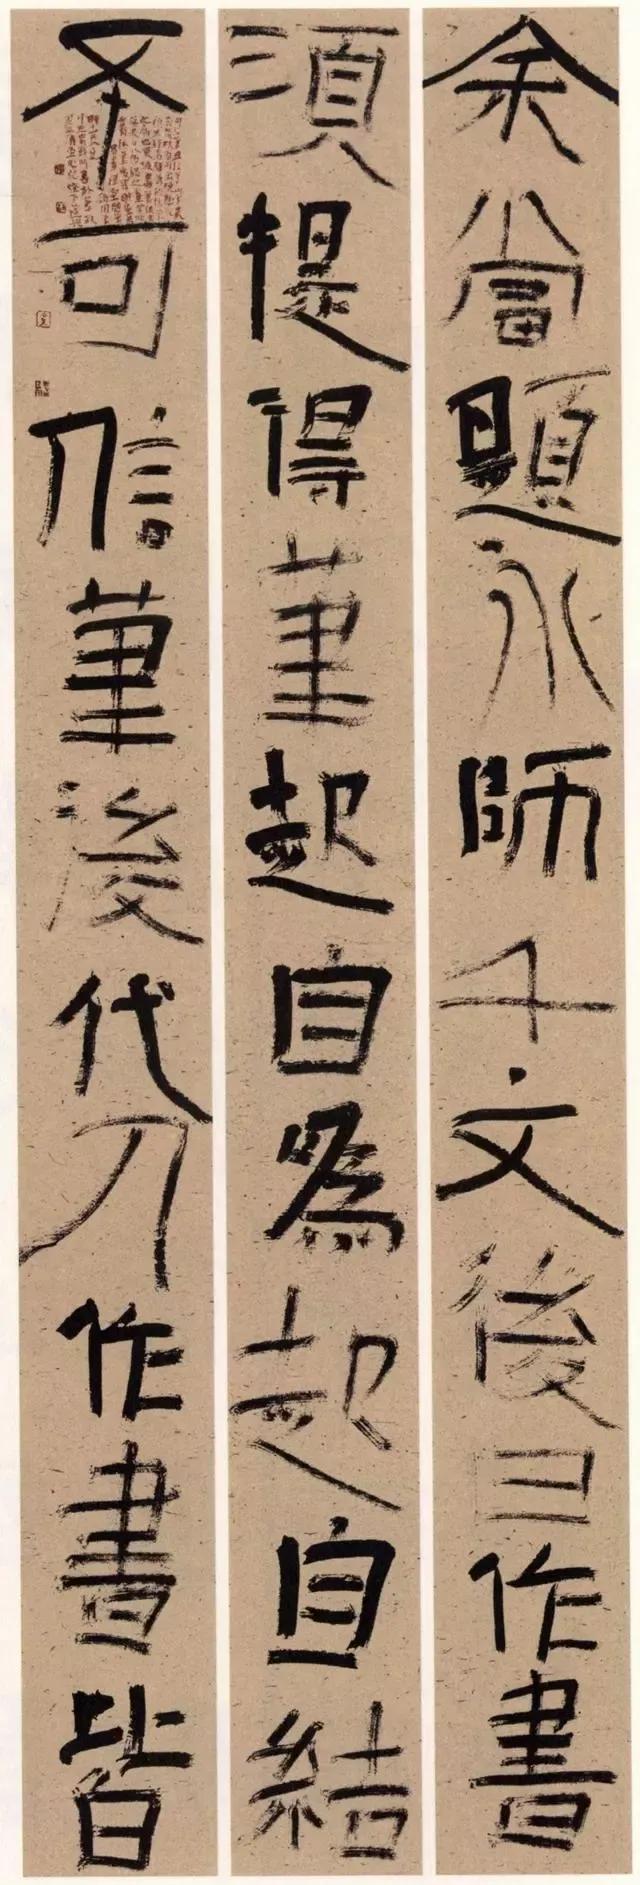 余嘗題永師千文後曰作書
須提得筆起自為起自結
不可信筆後代人作書皆